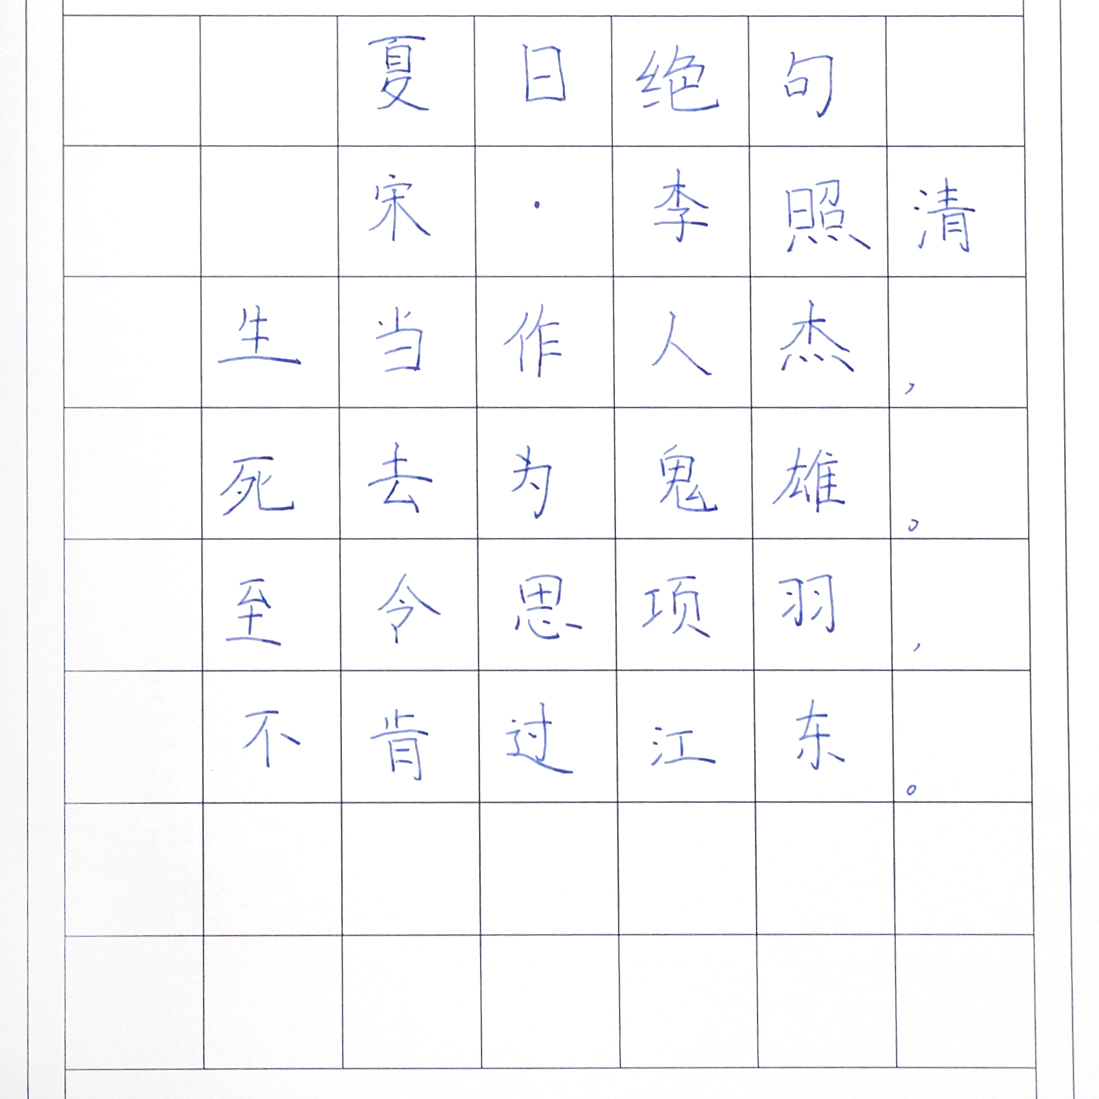 夏日绝句
宋·李照清
生当作人杰，
死去为鬼雄。
至令思项羽，
不肯过江东。